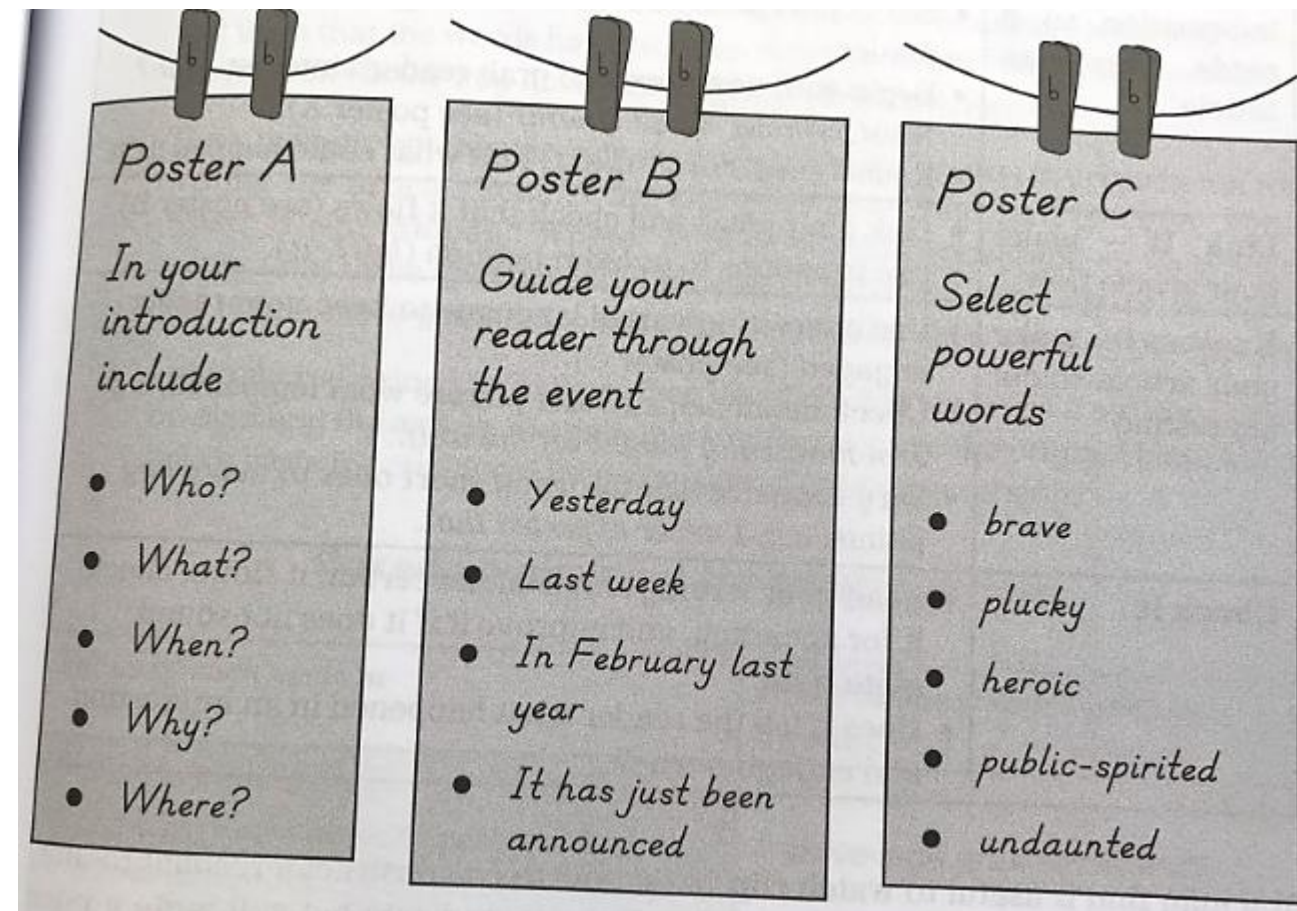 Poster A
In your
introduction
include
• Who?
• What?
• When?
• Why?
• Where?
Poster B
Guide your
reader through
the event
• Yesterday
• Last week
• In February last
year
• It has just been
announced
Poster C
Select
powerful
words
• brave
• plucky
• heroic
• public-spirited
• undaunted